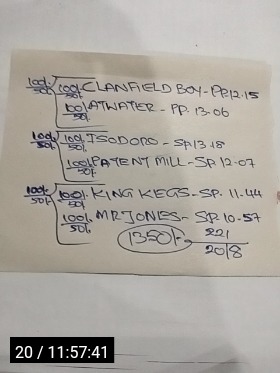 100/- 50/- 100/- 50/- CLANFIELD BOY - PP. 12.15
100/- 50/- ATWATER - PP. 13.06
100/- 50/- 100/- 50/- ISODORO - SP. 13.18
100/- 50/- PATENT MILL - SP. 12.07
100/- 50/- 100/- 50/- KING KEGS - SP. 11.44
100/- 50/- MR JONES - SP. 10.57
1350/- 221
2018
20 / 11:57:41